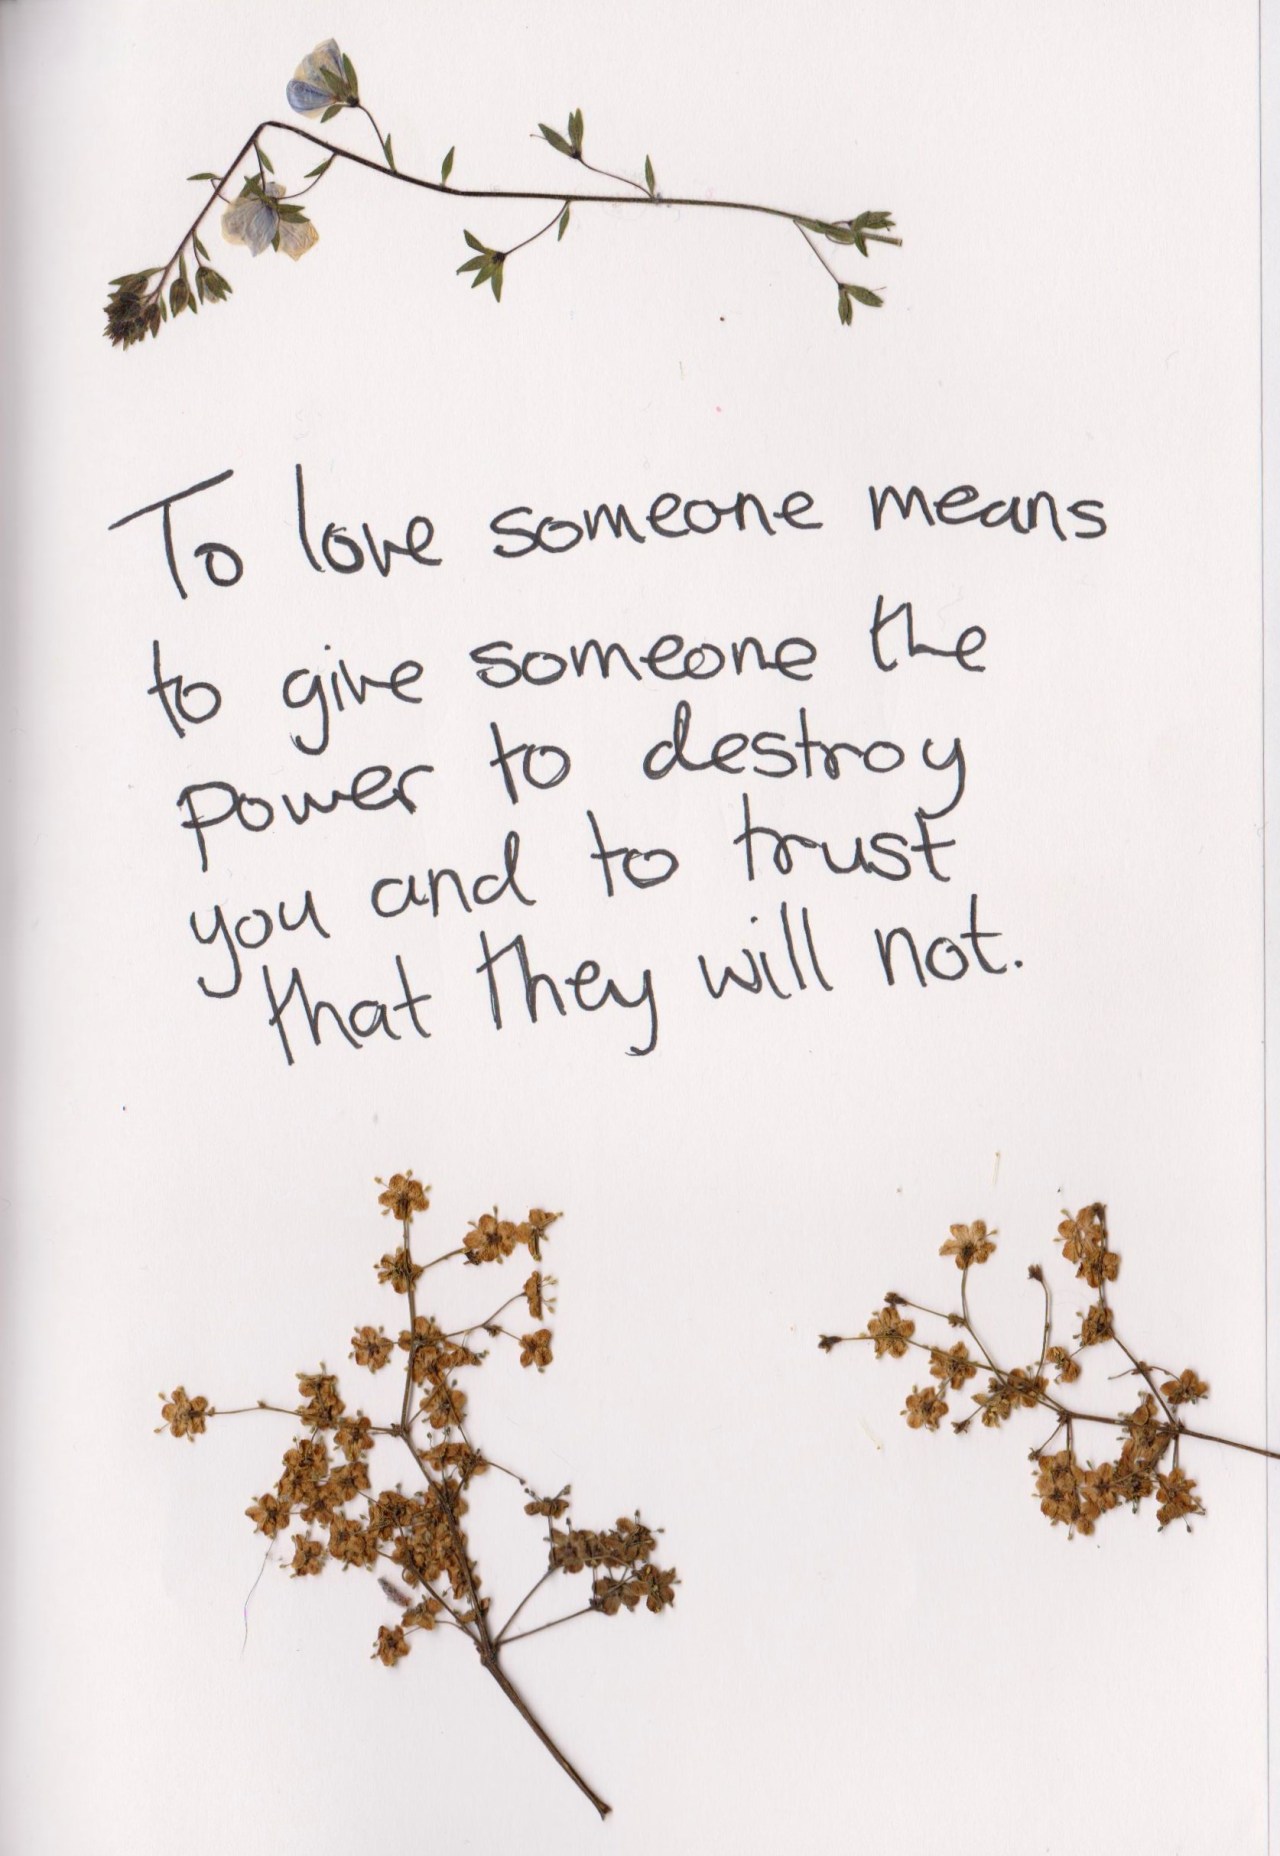 To love someone means
to give someone the
power to destroy
you and to trust
that they will not.